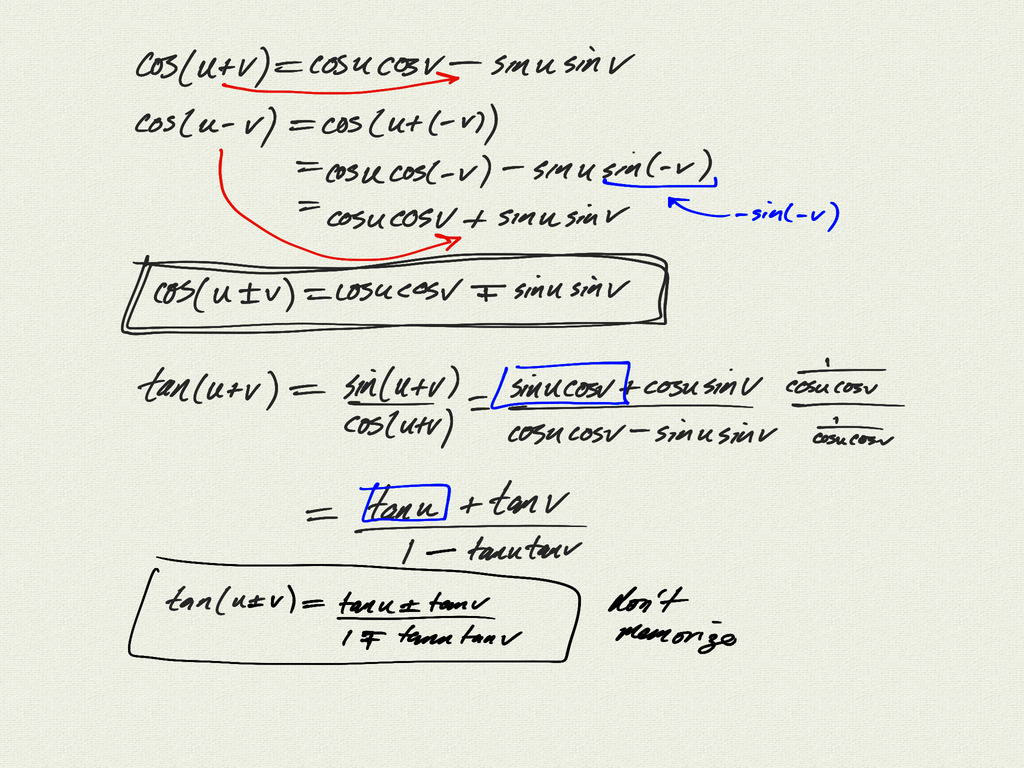 cos(u+v) = cosu cosv − sinu sinv
cos(u−v) = cos(u+(−v))
= cosu cos(−v) − sinu sin(−v)
−sin(−v)
= cosu cosv + sinu sinv
cos(u±v) = cosu cosv ∓ sinu sinv
tan(u+v) = sin(u+v)/cos(u+v) = (sinu cosv + cosu sinv)/(cosu cosv − sinu sinv) (1/(cosu cosv))/(1/(cosu cosv))
= (tanu + tanv)/(1 − tanu tanv)
tan(u±v) = (tanu ± tanv)/(1 ∓ tanu tanv)
don't
memorize